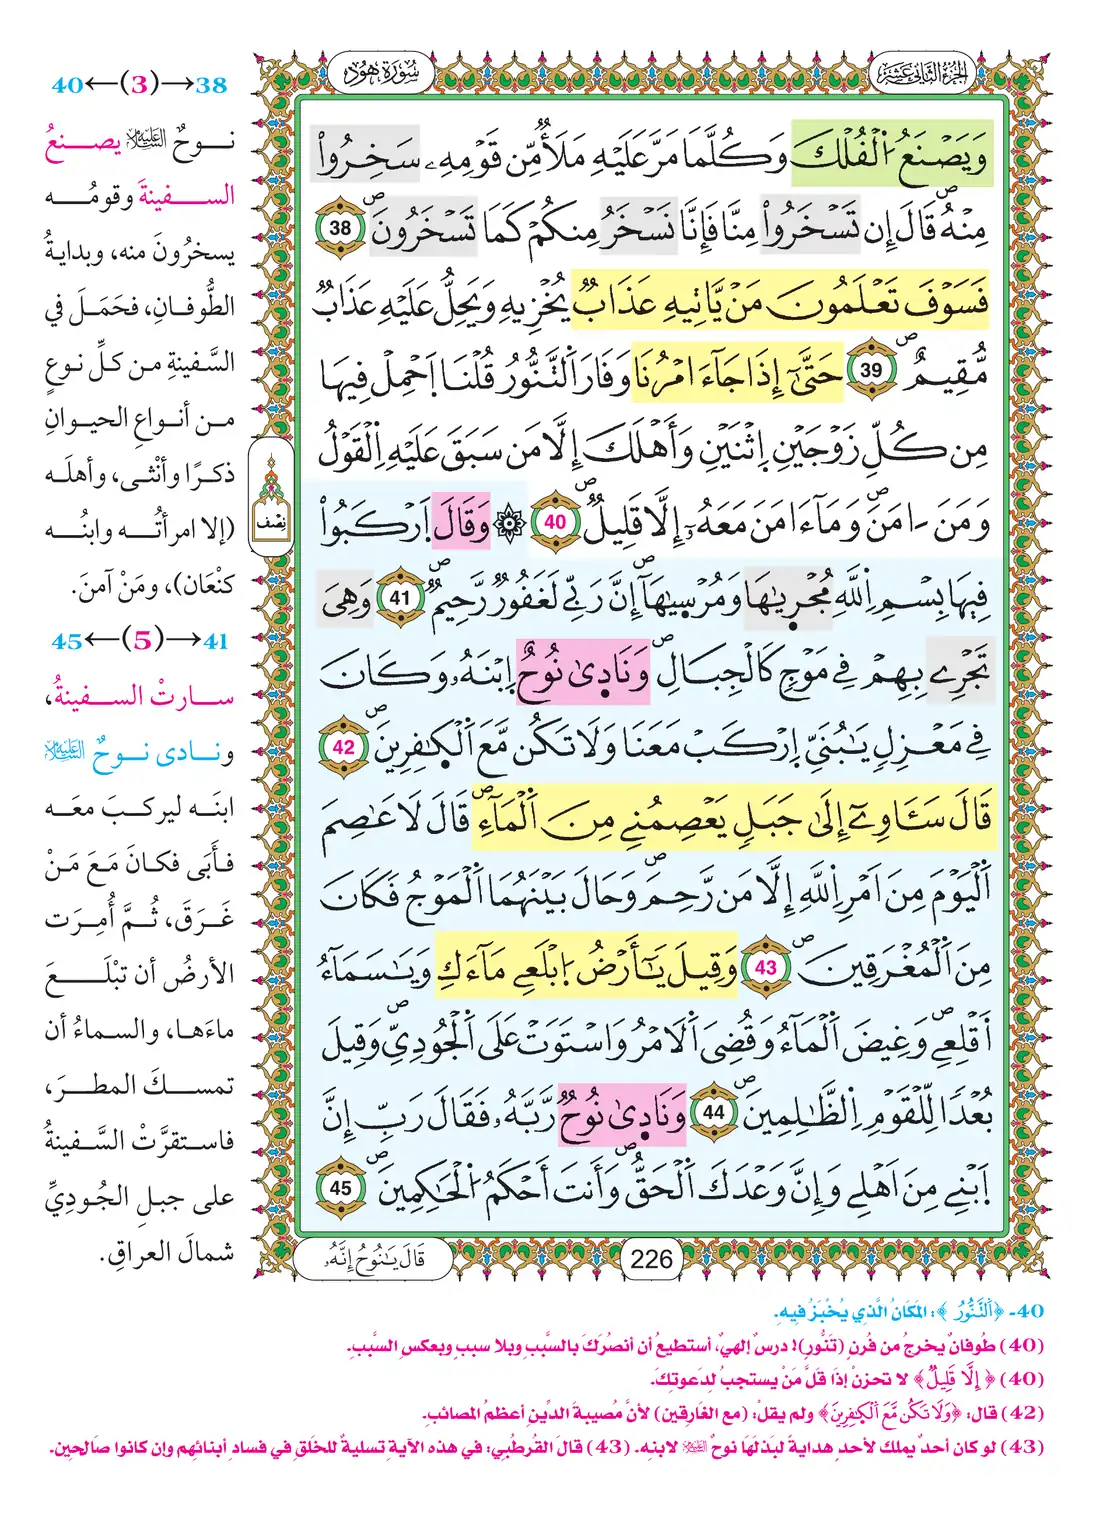 الجزء الثاني عشر
سورة هود
وَيَصْنَعُ اُ۬لْفُلْكَ وَكُلَّمَا مَرَّ عَلَيْهِ مَلَأٌ مِّن قَوْمِهِۦ سَخِرُواْ
مِنْهُۖ قَالَ إِن تَسْخَرُواْ مِنَّا فَإِنَّا نَسْخَرُ مِنكُمْ كَمَا تَسْخَرُونَۖ 38
فَسَوْفَ تَعْلَمُونَ مَنْ يَّاتِيهِ عَذَابٌ يُخْزِيهِ وَيَحِلُّ عَلَيْهِ عَذَابٌ
مُّقِيمٌۖ 39 حَتَّىٰٓ إِذَا جَآءَ امْرُنَا وَفَارَ اَ۬لتَّنُّورُ قُلْنَا اَحْمِلْ فِيهَا
مِن كُلِّ زَوْجَيْنِ اِ۪ثْنَيْنِ وَأَهْلَكَ إِلَّا مَن سَبَقَ عَلَيْهِ اِ۬لْقَوْلُ
وَمَنَ اٰمَنَۖ وَمَآ ءَامَنَ مَعَهُۥٓ إِلَّا قَلِيلٌۖ 40 ۞ وَقَالَ اَ۪رْكَبُواْ
فِيهَا بِسْمِ اِ۬للَّهِ مُجْر۪ىٰهَا وَمُرْسَىٰهَآۖ إِنَّ رَبِّي لَغَفُورٌ رَّحِيمٌۖ 41 وَهِيَ
تَجْرِي بِهِمْ فِي مَوْجٍ كَالْجِبَالِۖ وَنَاد۪ىٰ نُوحٌ اِ۪بْنَهُۥ وَكَانَ
فِي مَعْزِلٍ يَٰبُنَيِّ اِ۪رْكَب مَّعَنَا وَلَا تَكُن مَّعَ اَ۬لْكٰ۪فِرِينَۖ 42
قَالَ سَـَٔاوِيٓ إِلَىٰ جَبَلٍ يَعْصِمُنِي مِنَ اَ۬لْمَآءِۖ قَالَ لَا عَاصِمَ
اَ۬لْيَوْمَ مِنَ اَمْرِ اِ۬للَّهِ إِلَّا مَن رَّحِمَۖ وَحَالَ بَيْنَهُمَا اَ۬لْمَوْجُ فَكَانَ
مِنَ اَ۬لْمُغْرَقِينَۖ 43 وَقِيلَ يَٰٓأَرْضُ اُ۪بْلَعِي مَآءَكِ وَيَٰسَمَآءُ
أَقْلِعِيۖ وَغِيضَ اَ۬لْمَآءُ وَقُضِيَ اَ۬لَامْرُ وَاسْتَوَتْ عَلَى اَ۬لْجُودِيِّۖ وَقِيلَ
بُعْدًا لِّلْقَوْمِ اِ۬لظَّٰلِمِينَۖ 44 وَنَاد۪ىٰ نُوحٌ رَّبَّهُۥ فَقَالَ رَبِّ إِنَّ
اَ۪بْنِي مِنَ اَهْلِي وَإِنَّ وَعْدَكَ اَ۬لْحَقُّۖ وَأَنتَ أَحْكَمُ اُ۬لْحَٰكِمِينَۖ 45
نِصْف
226
قَالَ يَٰنُوحُ إِنَّهُۥ
38→(3)←40
نوحٌ عليه السلام يصنعُ
السفينةَ وقومُه
يسخرُونَ منه، وبدايةُ
الطُّوفانِ، فحَمَلَ في
السَّفينةِ من كلِّ نوعٍ
من أنواعِ الحيوانِ
ذكرًا وأنْثى، وأهلَه
(إلا امرأتُه وابنُه
كنْعَان)، ومَنْ آمنَ.
41→(5)←45
سارتْ السفينةُ،
ونادى نوحٌ عليه السلام
ابنَه ليركبَ معَه
فأبَى فكانَ مَعَ مَنْ
غَرَقَ، ثُمَّ أُمِرَت
الأرضُ أن تبْلَعَ
ماءَها، والسماءُ أن
تمسكَ المطرَ،
فاستقرَّتْ السَّفينةُ
على جبلِ الجُودِيِّ
شمالَ العراقِ.
40- ﴿اَ۬لتَّنُّورُ﴾: المَكَانُ الَّذِي يُخْبَزُ فيهِ.
(40) طُوفانٌ يخرجُ من فُرنٍ (تَنُّورِ)! درسٌ إلهيٌ، أستطيعُ أن أنصُرَكَ بالسَّببِ وبلا سببٍ وبعكسِ السَّببِ.
(40) ﴿إِلَّا قَلِيلٌ﴾ لا تحزنْ إذَا قَلَّ مَنْ يستجبُ لِدَعوتِكَ.
(42) قال: ﴿وَلَا تَكُن مَّعَ اَ۬لْكٰ۪فِرِينَ﴾ ولم يقلْ: (مع الغَارِقين) لأنَّ مُصيبةَ الدِّينِ أعظمُ المصائبِ.
(43) لو كان أحدٌ يملك لأحدٍ هدايةً لبَذلَهَا نوحٌ عليه السلام لابنِهِ. (43) قالَ القُرطُبي: في هذه الآيةِ تسليةٌ للخَلقِ في فسادِ أبنائهِم وإن كانوا صَالحِين.